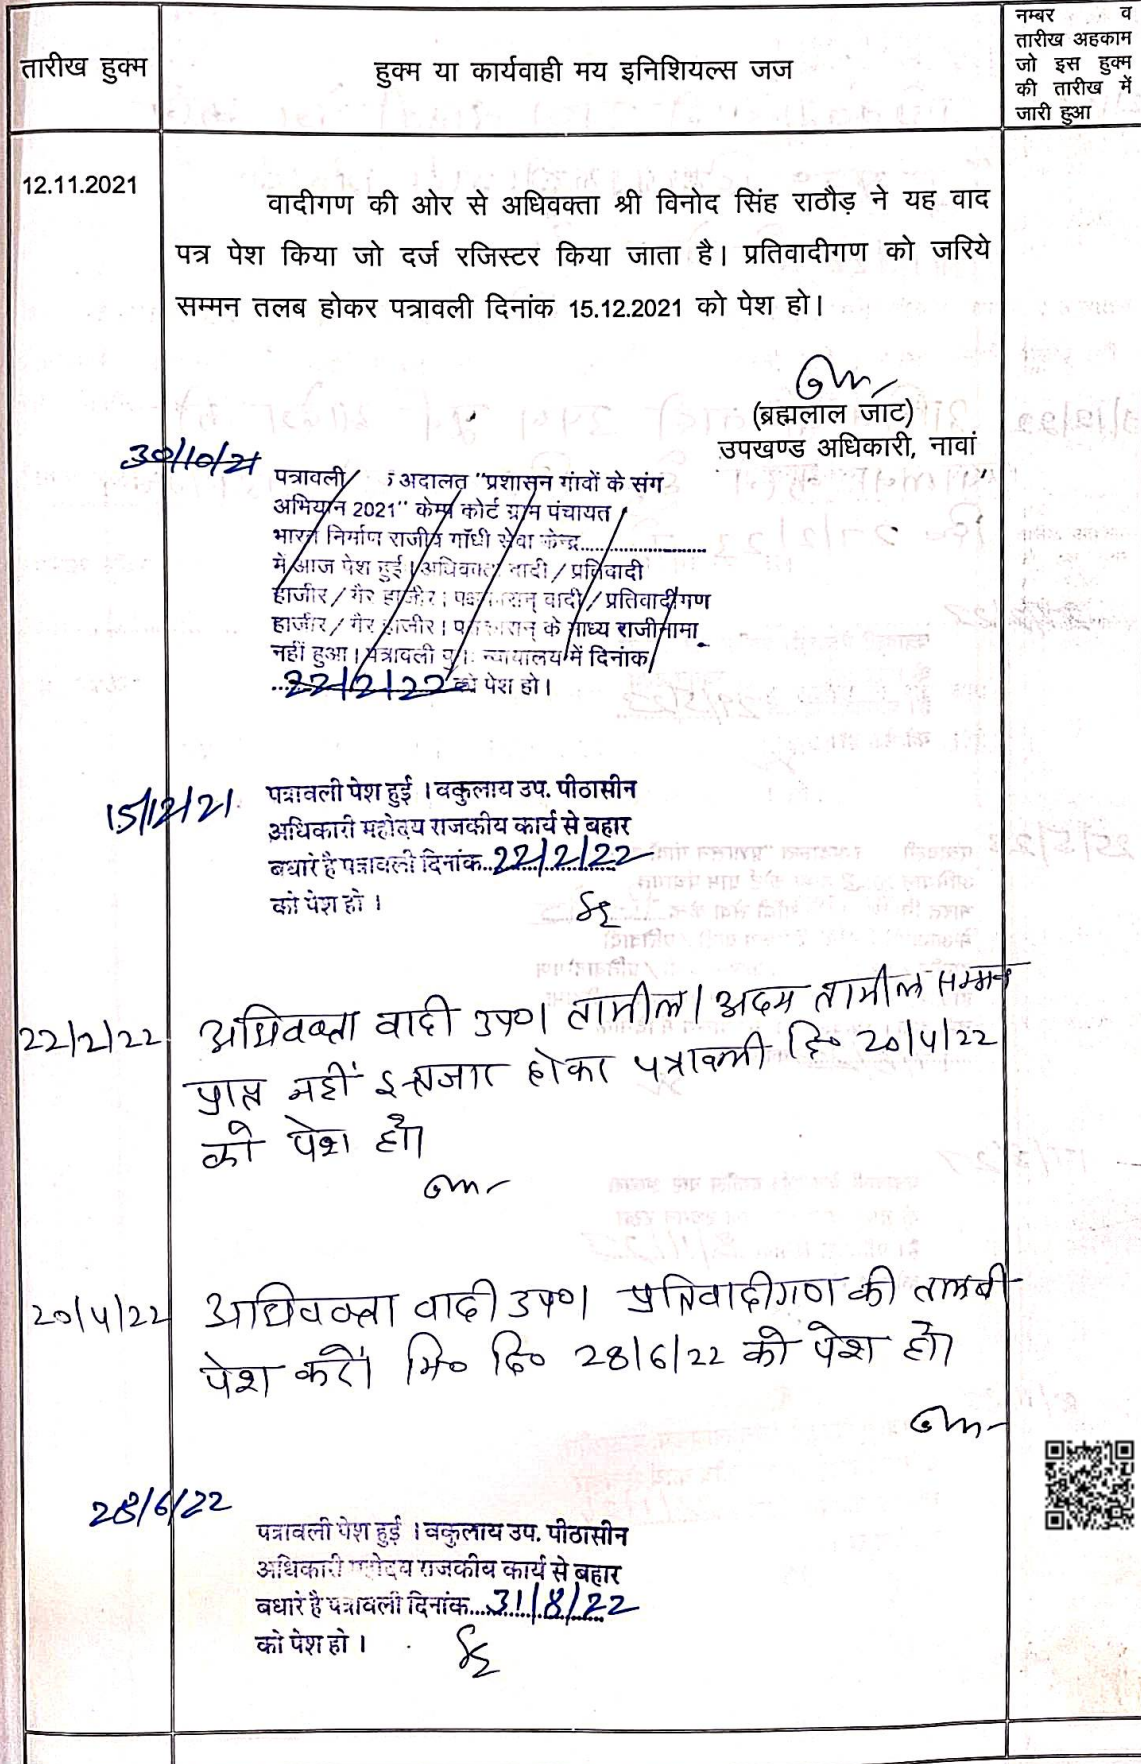 तारीख हुक्म
हुक्म या कार्यवाही मय इनिशियल्स जज
नम्बर व
तारीख अहकाम
जो इस हुक्म
की तारीख में
जारी हुआ
12.11.2021
वादीगण की ओर से अधिवक्ता श्री विनोद सिंह राठौड़ ने यह वाद
पत्र पेश किया जो दर्ज रजिस्टर किया जाता है। प्रतिवादीगण को जरिये
सम्मन तलब होकर पत्रावली दिनांक 15.12.2021 को पेश हो।
(ब्रह्मलाल जाट)
उपखण्ड अधिकारी, नावां
30/10/21
पत्रावली अदालत "प्रशासन गांवों के संग
अभियान 2021" केम्प कोर्ट ग्राम पंचायत
भारत निर्माण राजीव गाँधी सेवा केन्द्र....................
में आज पेश हुई। अधिवक्ता वादी / प्रतिवादी
हाजीर / गैर हाजीर। वादी / प्रतिवादीगण
हाजीर / गैर हाजीर। के माध्य राजीनामा
नहीं हुआ। पत्रावली न्यायालय में दिनांक
22/2/22 को पेश हो।
15/12/21
पत्रावली पेश हुई । वकुलाय उप. पीठासीन
अधिकारी महोदय राजकीय कार्य से बहार
बधारे है पत्रावली दिनांक..22/2/22
को पेश हो ।
22/2/22 अधिवक्ता वादी उप0। तामील / अदम तामील सम्मन
प्राप्त नहीं इन्तजार होकर पत्रावली दि० 20/4/22
को पेश हो।
20/4/22 अधिवक्ता वादी उप0। प्रतिवादीगण की तलबी
पेश करें। मि० दि० 28/6/22 को पेश हो।
28/6/22
पत्रावली पेश हुई । वकुलाय उप. पीठासीन
अधिकारी महोदय राजकीय कार्य से बहार
बधारे है पत्रावली दिनांक....31/8/22
को पेश हो ।